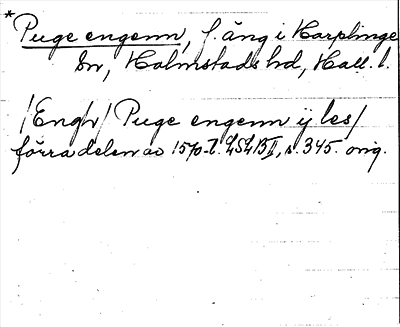 * Puge engenn, f. äng i Harplinge
sn, Halmstads hd, Hall. l.
/Engh/ Puge engenn ÿ les/
förra delen av 1570-t. LSLBII, s. 345. orig.